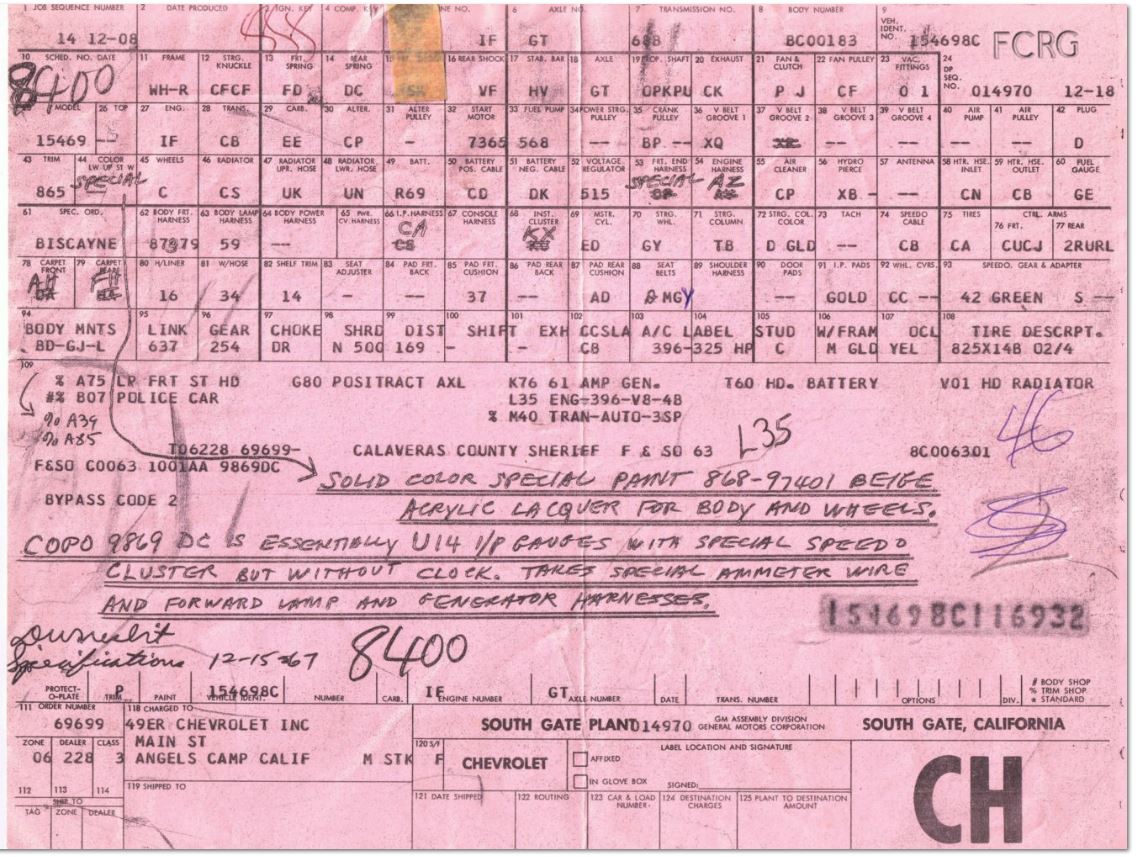 1 JOB SEQUENCE NUMBER 2 DATE PRODUCED 3 IGN. KEY 4 COMP. KEY NE NO. 6 AXLE NO. 7 TRANSMISSION NO. 8 BODY NUMBER 9 VEH. IDENT. NO.
14 12-08 IF GT 688 BC00183 154698C FCRG
10 SCHED. NO. DATE 11 FRAME 12 STRG. KNUCKLE 13 FRT. SPRING 14 REAR SPRING 16 REAR SHOCK 17 STAB. BAR 18 AXLE 19 PROP. SHAFT 20 EXHAUST 21 FAN & CLUTCH 22 FAN PULLEY 23 VAC. FITTINGS 24 DP SEQ. NO.
8400 WH-R CFCF FD DC VF HV GT OPKPU CK P J CF 0 1 014970 12-18
25 MODEL 26 TOP 27 ENG. 28 TRANS. 29 CARB. 30 ALTER. 31 ALTER PULLEY 32 START MOTOR 33 FUEL PUMP 34 POWER STRG. PULLEY 35 CRANK PULLEY 36 V BELT GROOVE 1 37 V BELT GROOVE 2 38 V BELT GROOVE 3 39 V BELT GROOVE 4 40 AIR PUMP 41 AIR PULLEY 42 PLUG
15469 IF CB EE CP - 7365 568 -- BP -- XQ -- -- -- -- D
43 TRIM 44 COLOR LW UP ST W 45 WHEELS 46 RADIATOR 47 RADIATOR UPR. HOSE 48 RADIATOR LWR. HOSE 49 BATT. 50 BATTERY POS. CABLE 51 BATTERY NEG. CABLE 52 VOLTAGE REGULATOR 53 FRT. END HARNESS 54 ENGINE HARNESS 55 AIR CLEANER 56 HYDRO PIPER 57 ANTENNA 58 HTR. HSE. INLET 59 HTR. HSE. OUTLET 60 FUEL GAUGE
865 SPECIAL C CS UK UN R69 CD DK 515 SPECIAL AZ CP XB - -- CN CB GE
61 SPEC. ORD. 62 BODY FRT. HARNESS 63 BODY LAMP HARNESS 64 BODY POWER HARNESS 65 PWR. CV. HARNESS 66 I.P. HARNESS 67 CONSOLE HARNESS 68 INST. CLUSTER 69 MSTR. CYL. 70 STRG. WHL. 71 STRG. COLUMN 72 STRG. COL. COLOR 73 TACH 74 SPEEDO CABLE 75 TIRES CTRL. ARMS 76 FRT. 77 REAR
BISCAYNE 87879 59 -- CA KX ED GY TB D GLD -- CB CA CUCJ 2RURL
78 CARPET FRONT 79 CARPET REAR 80 H/LINER 81 W/HOSE 82 SHELF TRIM 83 SEAT ADJUSTER 84 PAD FRT. BACK 85 PAD FRT. CUSHION 86 PAD REAR BACK 87 PAD REAR CUSHION 88 SEAT BELTS 89 SHOULDER HARNESS 90 DOOR PADS 91 I.P. PADS 92 WHL. CVRS. 93 SPEEDO. GEAR & ADAPTER
AH FH 16 34 14 - -- 37 -- AD MGY GOLD CC -- 42 GREEN S --
94 95 96 97 98 99 100 101 102 103 104 105 106 107 108
BODY MNTS LINK GEAR CHOKE SHRD DIST SHIFT EXH CCSLA A/C LABEL STUD W/FRAM OCL TIRE DESCRPT.
BD-GJ-L 637 254 DR N 500 169 - - CB 396-325 HP C M GLD YEL 825X14B 02/4
109
% A75 LR FRT ST HD G80 POSITRACT AXL K76 61 AMP GEN. T60 HD. BATTERY V01 HD RADIATOR
#% B07 POLICE CAR L35 ENG-396-V8-4B
% M40 TRAN-AUTO-3SP
% A39
% A85
T06228 69699- CALAVERAS COUNTY SHERIEF F & SO 63 L35 8C006301 46
F&SO C0063 1001AA 9869DC
SOLID COLOR SPECIAL PAINT 868-97401 BEIGE
BYPASS CODE 2
ACRYLIC LACQUER FOR BODY AND WHEELS.
COPO 9869 DC IS ESSENTIALLY U14 I/P GAUGES WITH SPECIAL SPEEDO
CLUSTER BUT WITHOUT CLOCK. TAKES SPECIAL AMMETER WIRE
AND FORWARD LAMP AND GENERATOR HARNESSES.
154698C116932
Specifications 12-15-67 8400
PROTECT-O-PLATE P TRIM PAINT 154698C VEHICLE IDENT. NUMBER CARB. IF ENGINE NUMBER GT AXLE NUMBER DATE TRANS. NUMBER OPTIONS DIV.
# BODY SHOP
% TRIM SHOP
* STANDARD
111 ORDER NUMBER 118 CHARGED TO
69699 49ER CHEVROLET INC SOUTH GATE PLANT 014970 GM ASSEMBLY DIVISION GENERAL MOTORS CORPORATION SOUTH GATE, CALIFORNIA
ZONE DEALER CLASS MAIN ST 120 S/F LABEL LOCATION AND SIGNATURE
06 228 3 ANGELS CAMP CALIF M STK F CHEVROLET AFFIXED
112 113 114 119 SHIPPED TO IN GLOVE BOX SIGNED:
SHIP TO 121 DATE SHIPPED 122 ROUTING 123 CAR & LOAD NUMBER 124 DESTINATION CHARGES 125 PLANT TO DESTINATION AMOUNT
TAG ZONE DEALER
CH